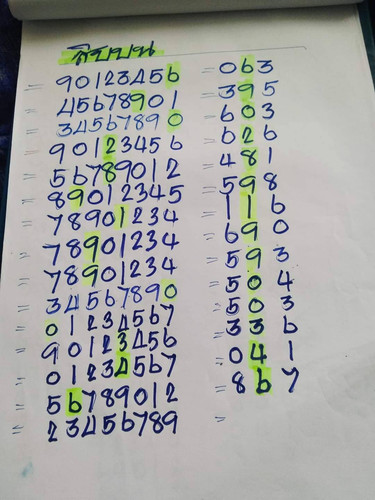 สิบบน
= 90123456 = 063
= 45678901 = 395
= 34567890 = 603
= 90123456 = 626
= 56789012 = 481
= 89012345 = 598
= 78901234 = 116
= 78901234 = 690
= 78901234 = 593
= 34567890 = 504
= 01234567 = 503
= 90123456 = 336
= 01234567 = 041
= 56789012 = 867
= 23456789 =